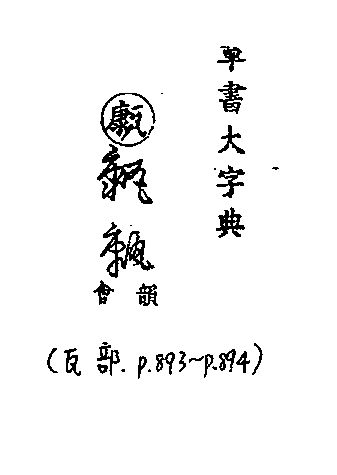 草書大字典
韻會
(瓦部.p.893~p.894)